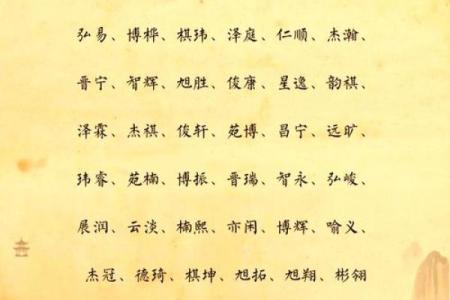 弘易、博桦、棋玮、泽庭、仁顺、杰瀚、
晋宁、智辉、旭胜、俊康、星逸、韵祺、
泽霖、杰祺、俊轩、苑博、昌宁、远旷、
玮睿、苑楠、博振、晋瑞、智永、弘峻、
展润、云淡、楠熙、亦闲、博辉、喻义、
杰冠、德琦、棋坤、旭拓、旭翔、彬翎